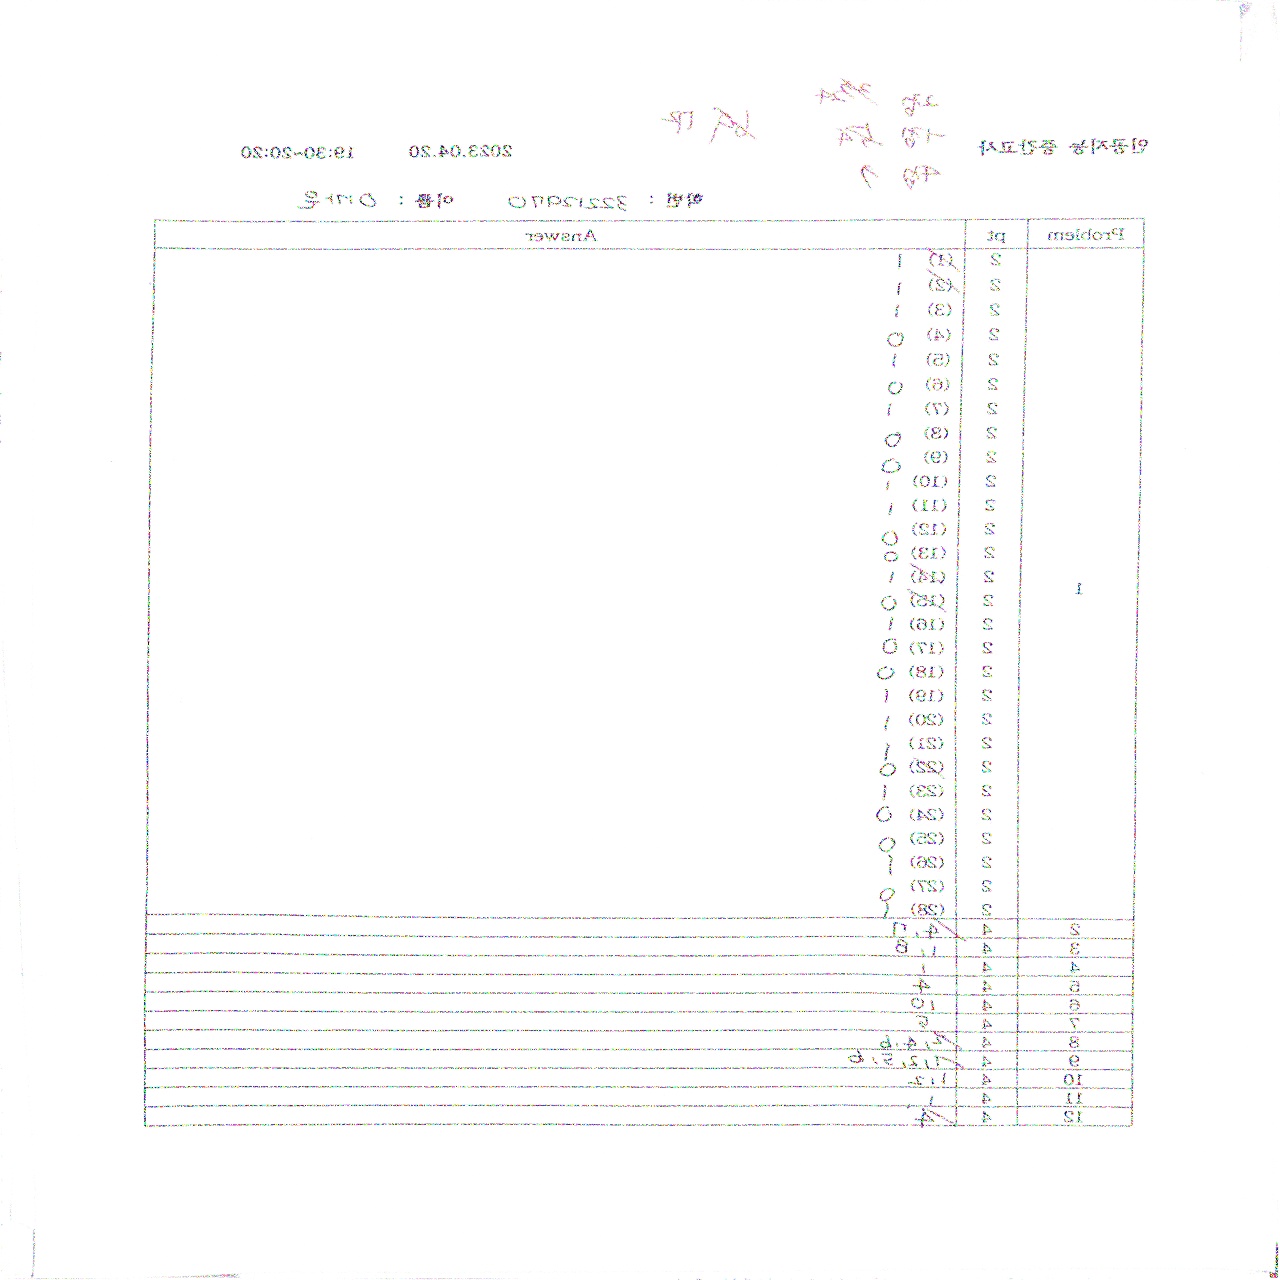 2점 35개
인공지능 중간고사 2023.04.20 19:30~20:20
학번 : 32212970 이름 :
Problem pt Answer
1
2 (1) 1
2 (2) 1
2 (3) 1
2 (4) 0
2 (5) 1
2 (6) 0
2 (7) 1
2 (8) 0
2 (9) 0
2 (10) 1
2 (11) 1
2 (12) 0
2 (13) 0
2 (14) 1
2 (15) 0
2 (16) 1
2 (17) 0
2 (18) 0
2 (19) 1
2 (20) 1
2 (21) 1
2 (22) 0
2 (23) 1
2 (24) 0
2 (25) 0
2 (26) 1
2 (27) 0
2 (28) 1
2 4 4, 7
3 4 1, 6
4 4 1
5 4 4
6 4 10
7 4 5
8 4 2, 4, 6
9 4 1, 2, 5, 6
10 4 1, 2
11 4 1
12 4 4